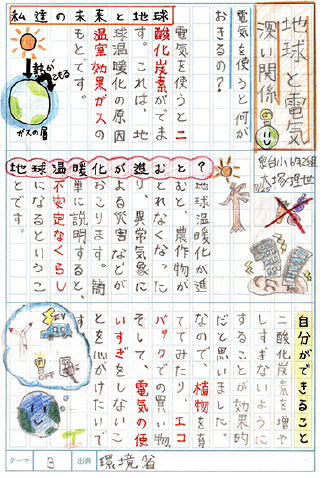 地球と電気
深い関係
電気を使うと何が
おきるの?
私達の未来と地球
電気を使うと二
酸化炭素がでま
す。これは、地
球温暖化の原因
温室効果ガスの
もとです。
熱が
こもる
ガスの層
地球温暖化が進むと?
地球温暖化が進
むと、農作物が
とれなくなった
り、異常気象に
よる災害などが
おこります。簡
単に説明すると、
不安定なくらし
になるというこ
とです。
自分ができること
二酸化炭素を増や
しすぎないように
することが効果的
だと思いました。
なので、植物を育
ててみたり、エコ
バックでの買い物、
そして、電気の使
いすぎをしないこ
とを心がけたいで
す。
テーマ B 出典 環境省